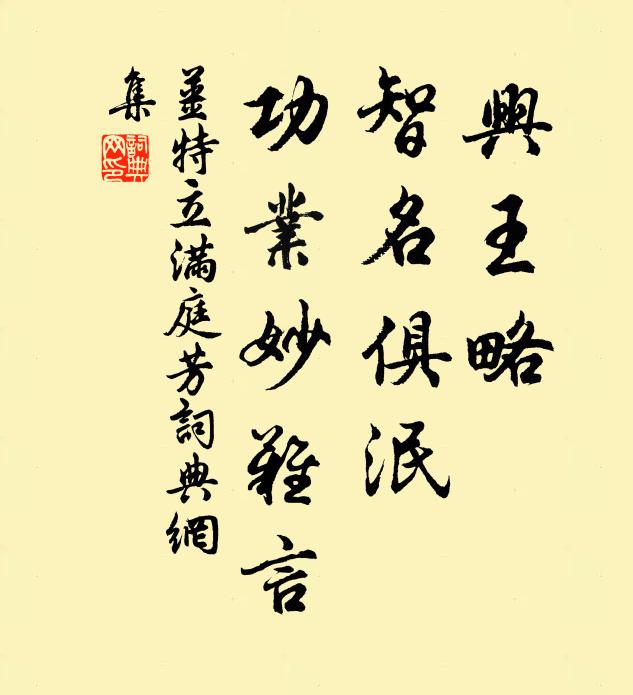 興王略
智名俱泯
功業妙難言
姜特立滿庭芳詞典網
集
詞典
网印